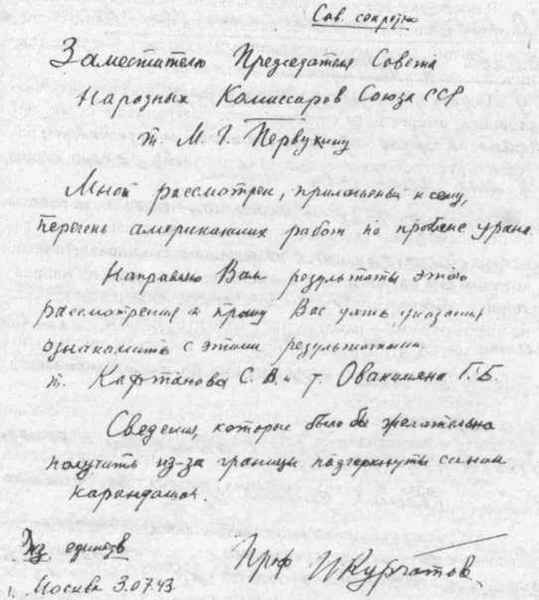 Сов. секретно
Заместителю Председателя Совета
Народных Комиссаров Союза ССР
т. М. Г. Первухину
Мной рассмотрен, приложенный к сему,
перечень американских работ по проблеме урана.
Направляю Вам результаты этого
рассмотрения и прошу Вас дать указания
ознакомить с этими результатами
т. Кафтанова С. В. и т. Овакимяна Г. Б.
Сведения, которые было бы желательно
получить из-за границы подчеркнуты синим
карандашом.
Экз единств
Проф И Курчатов
г. Москва 3.07.43